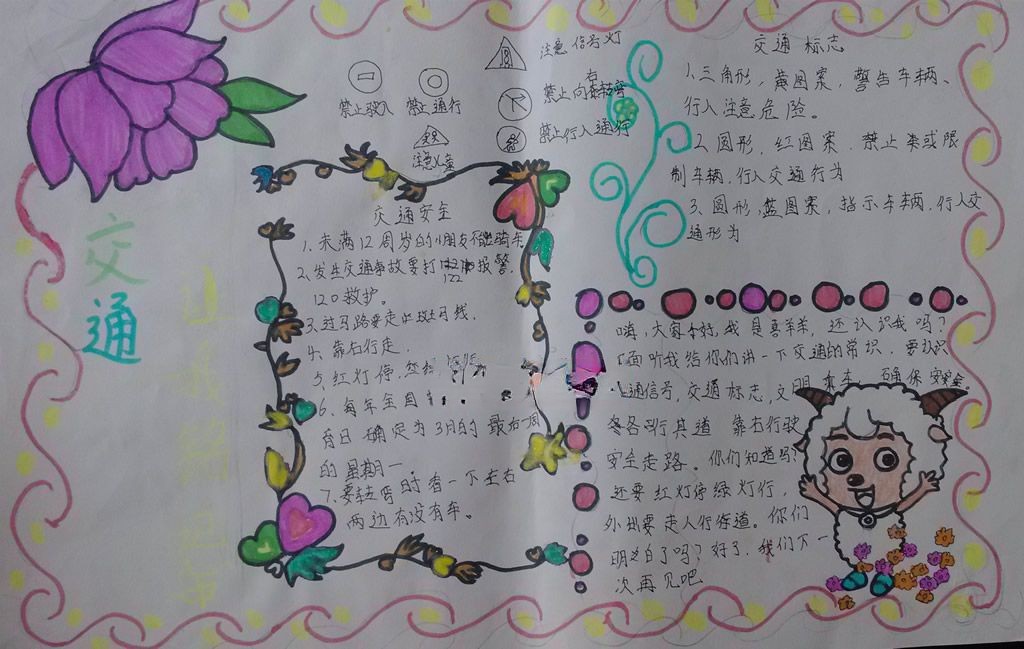 交通
注意信号灯
禁止驶入
禁止通行
禁止向右转弯
禁止行人通行
注意儿童
交通安全
1、未满12周岁的小朋友不能骑车
2、发生交通事故要打122报警,
120救护。
3、过马路要走斑马线。
4、靠右行走.
5、红灯停.
6、每年全国
育日 确定为3月的最后一周
的星期一.
7、要转弯时看一下左右
两边有没有车。
交通 标志
1、三角形,黄图案,警告车辆、
行人注意危险。
2、圆形,红图案,禁止或限
制车辆,行人交通行为
3、圆形,蓝图案,指示车辆,行人交
通形为
嗨,大家好,我是喜羊羊,还认识我吗?
下面听我给你们讲一下交通的常识,要认识
交通信号,交通标志,文明 确保安全。
各行其道 靠右行驶
安全走路。你们知道吗?
还要红灯停绿灯行,
外出要走人行街道。你们
明白了吗?好了,我们下一
次再见吧